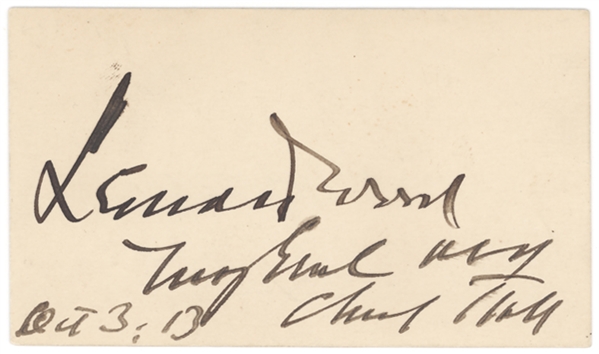 Leonard Wood
Maj Genl
Oct 3. 13 Chief Staff